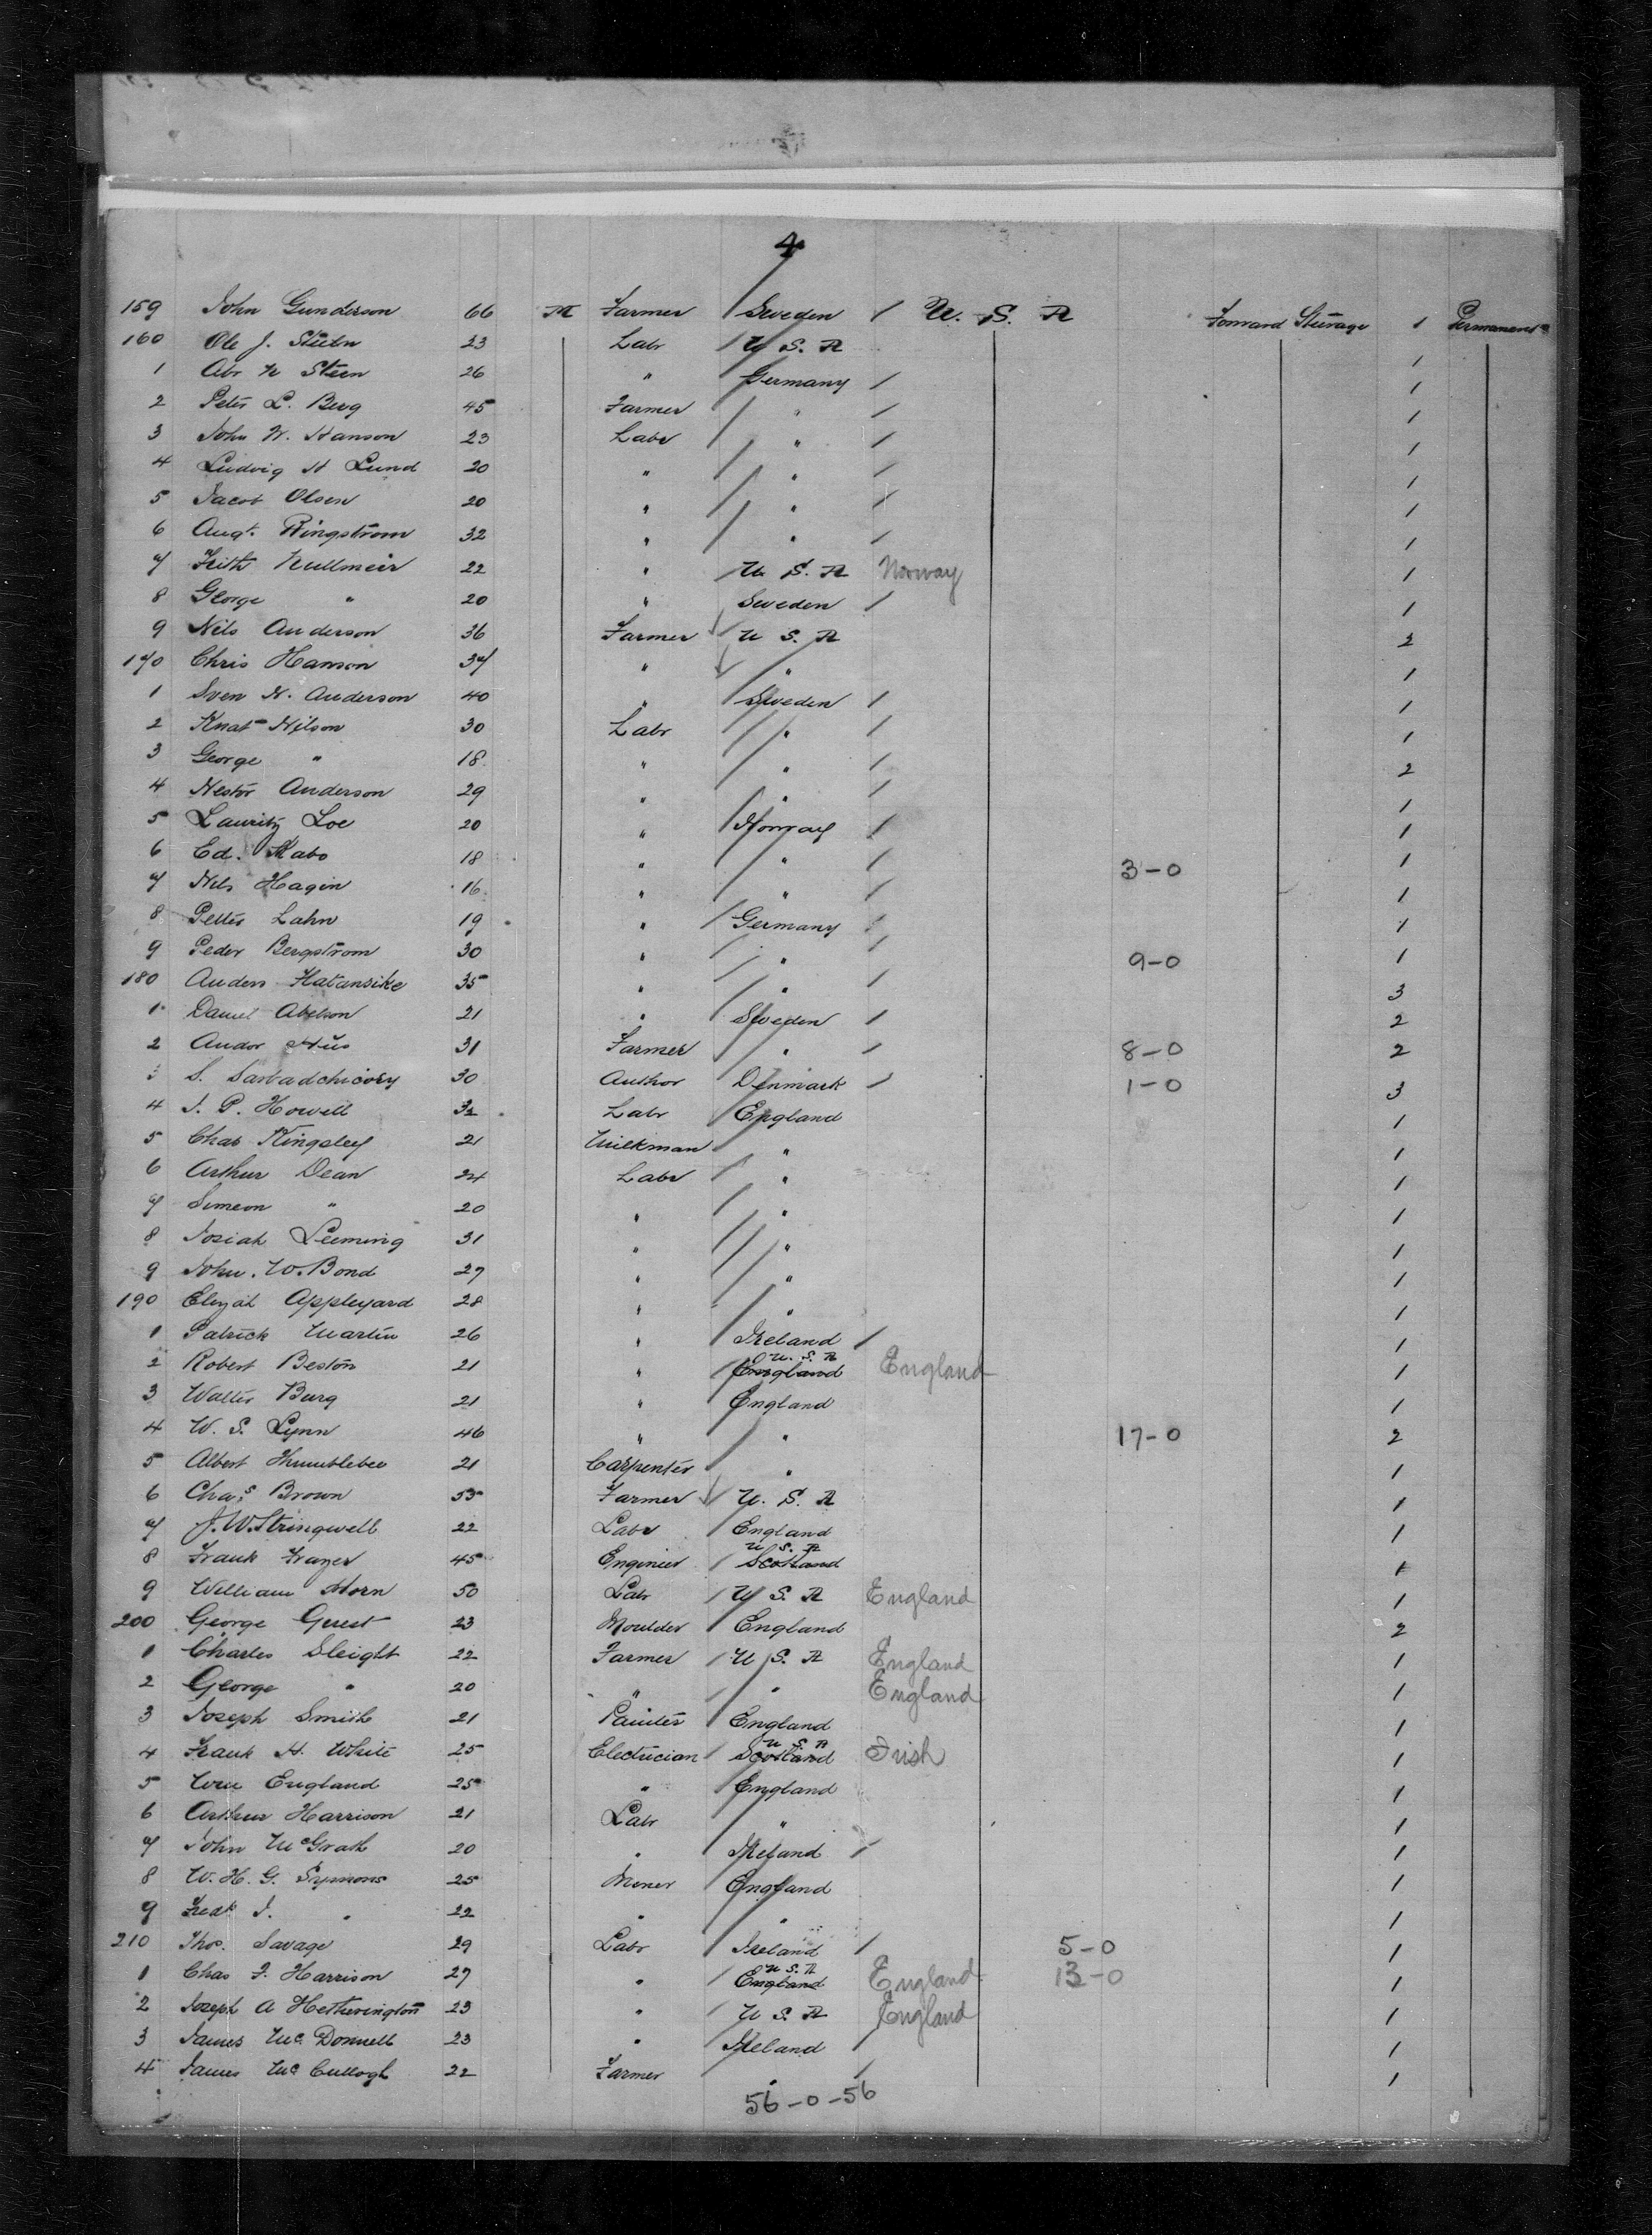 4
159 John Gunderson 66 M Farmer / Sweden / U. S. A Forward Steerage 1 Permanent
160 Ole J. 23 Labr / U S. A 1
1 Abr N Steen 26 " Germany / 1
2 Peter L. Berg 45 Farmer / " / 1
3 John W. Hanson 23 Labr / " / 1
4 Ludvig H Lund 20 " / " / 1
5 Jacob Olsen 20 " / " / 1
6 Augt. Ringstrom 32 " / " / 1
7 22 " / U. S. A Norway 1
8 George " 20 " Sweden / 1
9 Nils Anderson 36 Farmer / U S. A 2
170 Chris Hanson 37 " / " 1
1 Sven N. Anderson 40 " / Sweden / 1
2 Knat Nilson 30 Labr / " / 1
3 George " 18 " / " / 2
4 Nestor Anderson 29 " / " / 1
5 Lauritz Loe 20 " / Norway / 1
6 Ed. 18 " / " / 3-0 1
7 Nils Hagin 16 " / " / 1
8 Petter Lahn 19 " / Germany / 1
9 Peder Bergstrom 30 " / " / 9-0 1
180 Anders 35 " / " / 3
1 Daniel Abelson 21 " Sweden / 2
2 Andor 31 Farmer / " / 8-0 2
3 S. 30 Author / Denmark / 1-0 3
4 J. P. Howell 32 Labr / England 1
5 Chas Kingsley 21 Milkman / " 1
6 Arthur Dean 24 Labr / " 1
7 Simeon " 20 " / " 1
8 Josiah Leeming 31 " / " 1
9 John. W. Bond 27 " / " 1
190 Elizah Appleyard 28 " / " 1
1 Patrick Martin 26 " / Ireland / 1
2 Robert Beston 21 " / England U. S. A England 1
3 Walter Burg 21 " England 1
4 W. S. Lynn 46 " / " 17-0 2
5 Albert 21 Carpenter / " 1
6 Chas Brown 53 Farmer / U. S. A 1
7 J. W. Stringwell 22 Labr / England 1
8 Frank Frazer 45 Engineer / Scotland U S. A 1
9 William Horn 50 Labr / U S. A England 1
200 George Guest 23 Moulder / England 2
1 Charles Sleight 22 Farmer / U S. A England 1
2 George " 20 " / " England 1
3 Joseph Smith 21 Painter / England 1
4 Frank H. White 25 Electrician / Scotland U S A Irish 1
5 Wm England 25 " England 1
6 Arthur Harrison 21 Labr / " 1
7 John McGrath 20 " Ireland / 1
8 W. H. G. Symons 25 Miner / England 1
9 Fredk J. " 22 " " 1
210 Thos. Savage 29 Labr / Ireland / 5-0 1
1 Chas F. Harrison 27 " / England U S. A England 13-0 1
2 Joseph A Hetherington 23 " / U S. A England 1
3 James McDonnell 23 " / Ireland / 1
4 James McCullogh 22 Farmer " / 1
56-0-56